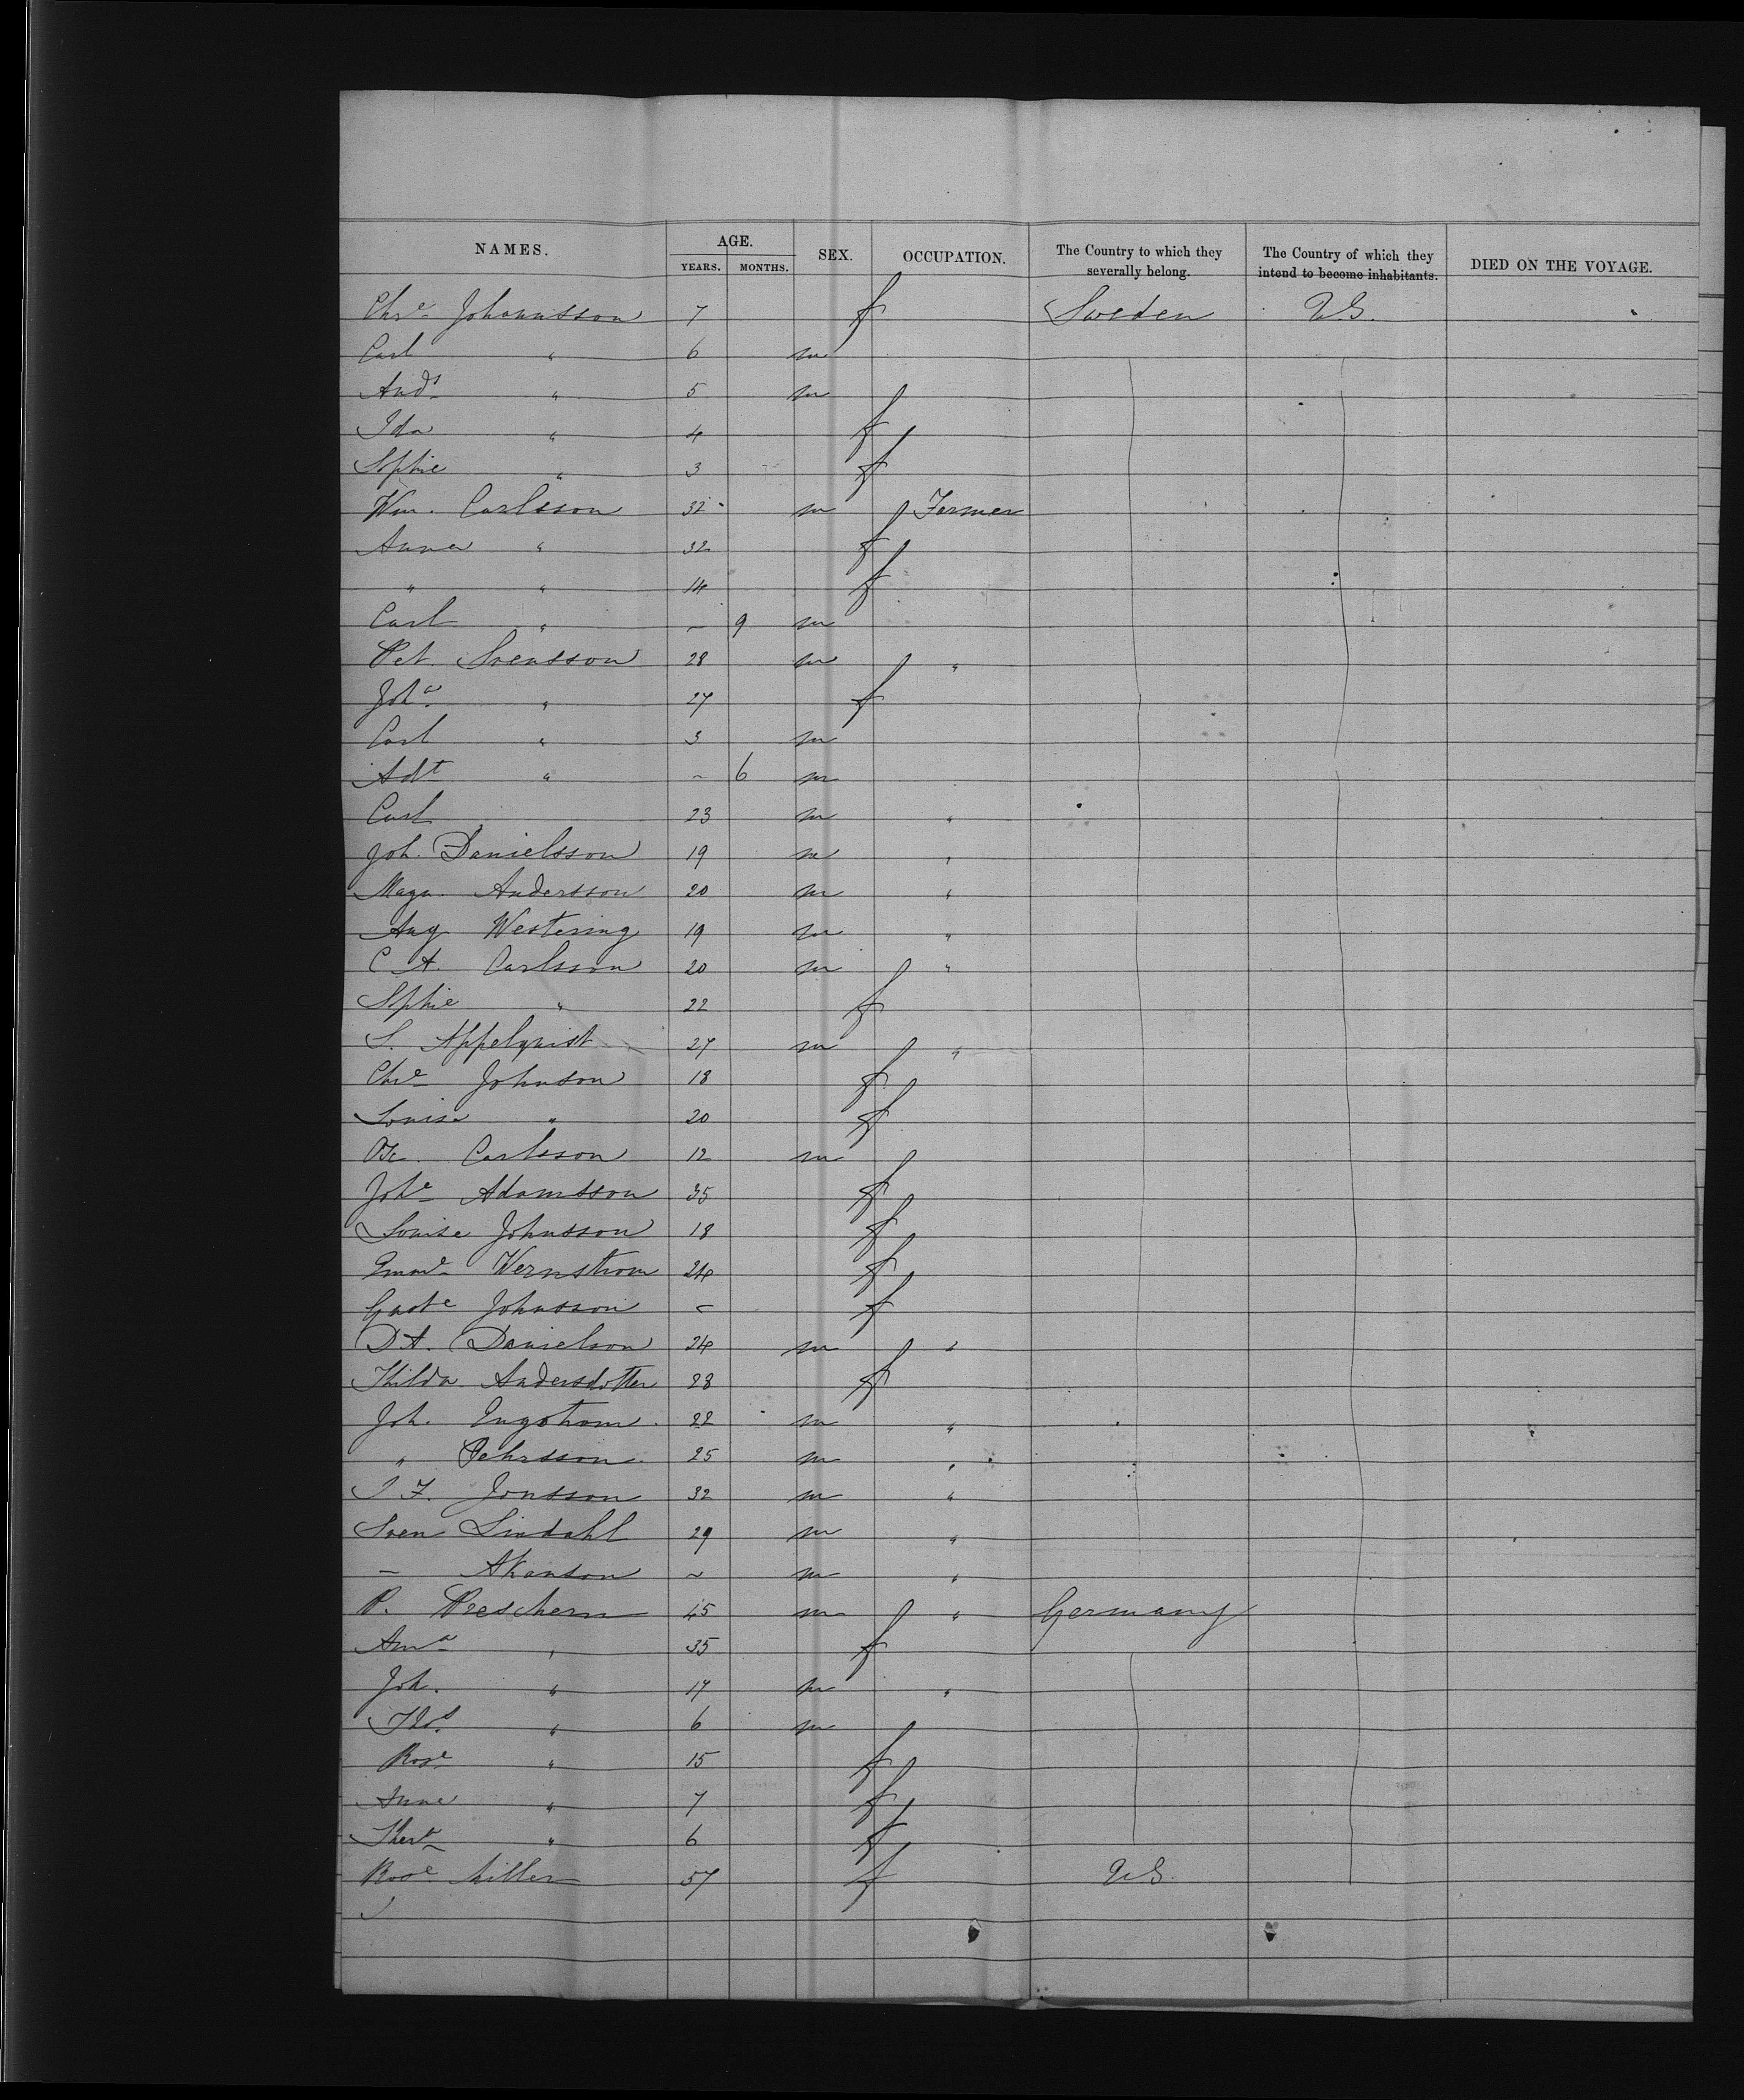 NAMES. AGE. YEARS. MONTHS. SEX. OCCUPATION. The Country to which they severally belong. The Country of which they intend to become inhabitants. DIED ON THE VOYAGE.
Chre Johannsson 7 f Sweden U.S.
Carl " 6 m
Ands " 5 m
Ida " 4 f
Sophie " 3 f
Wm. Carlsson 32 m Farmer
Anna " 32 f
" " 14 f
Carl " – 9 m
Pet. Svensson 28 m "
Joha " 27 f
Carl " 3 m
Adt " – 6 m
Carl 23 m "
Joh. Danielsson 19 m "
Magn. Andersson 20 m "
Aug Westering 19 m "
C A. Carlsson 20 m "
Sophie " 22 f
S. Appelqvist 27 m "
Chre Johnson 18 f
Louise " 20 f
Osc. Carlsson 12 m
Johe Adamsson 35 f
Louise Johnsson 18 f
Emme Wernstrom 24 f
Guste Johnsson – f
D A. Danielson 24 m "
Thilda Andersdotter 28 f
Joh. Engstrom 22 m "
" Pehrsson 25 m "
J F. Jonsson 32 m "
Sven Lindahl 29 m "
– Akanson ~ m "
P. Preschern 45 m " Germany
Ama " 35 f
Joh. " 17 m "
Thos " 6 m
Rose " 15 f
Anna " 7 f
" 6 f
Rose Miller 57 f U.S.